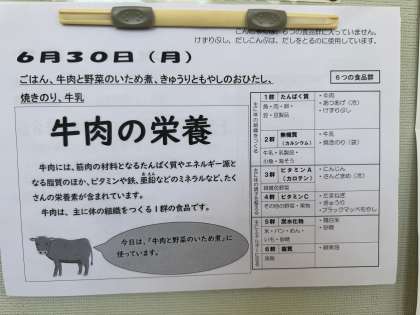 こんだてには、6つの食品群に入っていません。
けずりぶし、だしこんぶは、だしをとるのに使用しています。
6月30日（月）
ごはん、牛肉と野菜のいため煮、きゅうりともやしのおひたし、
焼きのり、牛乳
6つの食品群
牛肉の栄養
牛肉には、筋肉の材料となるたんぱく質やエネルギー源と
なる脂質のほか、ビタミンや鉄、亜鉛などのミネラルなど、たく
さんの栄養素が含まれています。
牛肉は、主に体の組織をつくる1群の食品です。
今日は、「牛肉と野菜のいため煮」に
使っています。
1群 たんぱく質
魚・肉・卵・
豆・豆製品
・牛肉
・あつあげ（冷）
・けずりぶし
2群 無機質
（カルシウム）
牛乳・乳製品・
小魚・海そう
・牛乳
・焼きのり（袋）
3群 ビタミンA
（カロテン）
緑黄色野菜
・にんじん
・さんどまめ（冷）
4群 ビタミンC
その他の野菜・果物
・たまねぎ
・きゅうり
・ブラックマッペもやし
5群 炭水化物
米・パン・めん・
いも・砂糖
・精白米
・砂糖
6群 脂質
油脂
・綿実油